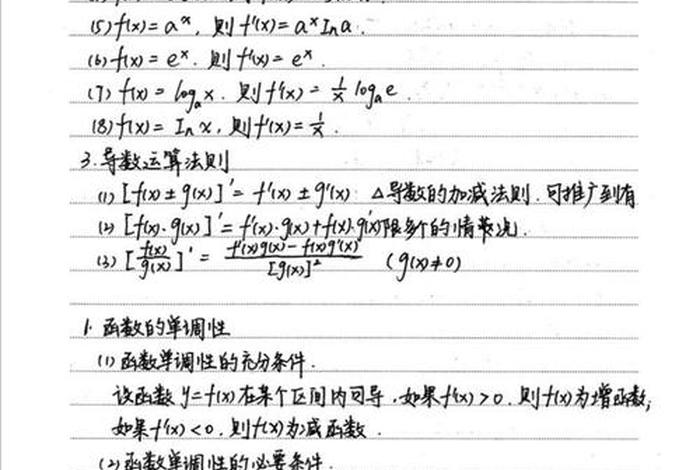 (5) f(x) = aˣ, 则 f'(x) = aˣ In a.
(6) f(x) = eˣ. 则 f'(x) = eˣ.
(7) f(x) = logₐx. 则 f'(x) = 1/x logₐe.
(8) f(x) = In x, 则 f'(x) = 1/x.
3. 导数运算法则
(1) [f(x) ± g(x)]' = f'(x) ± g'(x) △导数的加减法则.可推广到有
(2) [f(x)·g(x)]' = f'(x)·g(x)+f(x)·g'(x) 限多个的情况.
(3) [f(x)/g(x)]' = f'(x)g(x)-f(x)g'(x)/[g(x)]² (g(x)≠0)
1. 函数的单调性
(1) 函数单调性的充分条件.
设函数 y=f(x) 在某个区间内可导,如果 f'(x) > 0. 则 f(x) 为增函数;
如果 f'(x) < 0. 则 f(x) 为减函数.
(2) 函数单调性的必要条件.